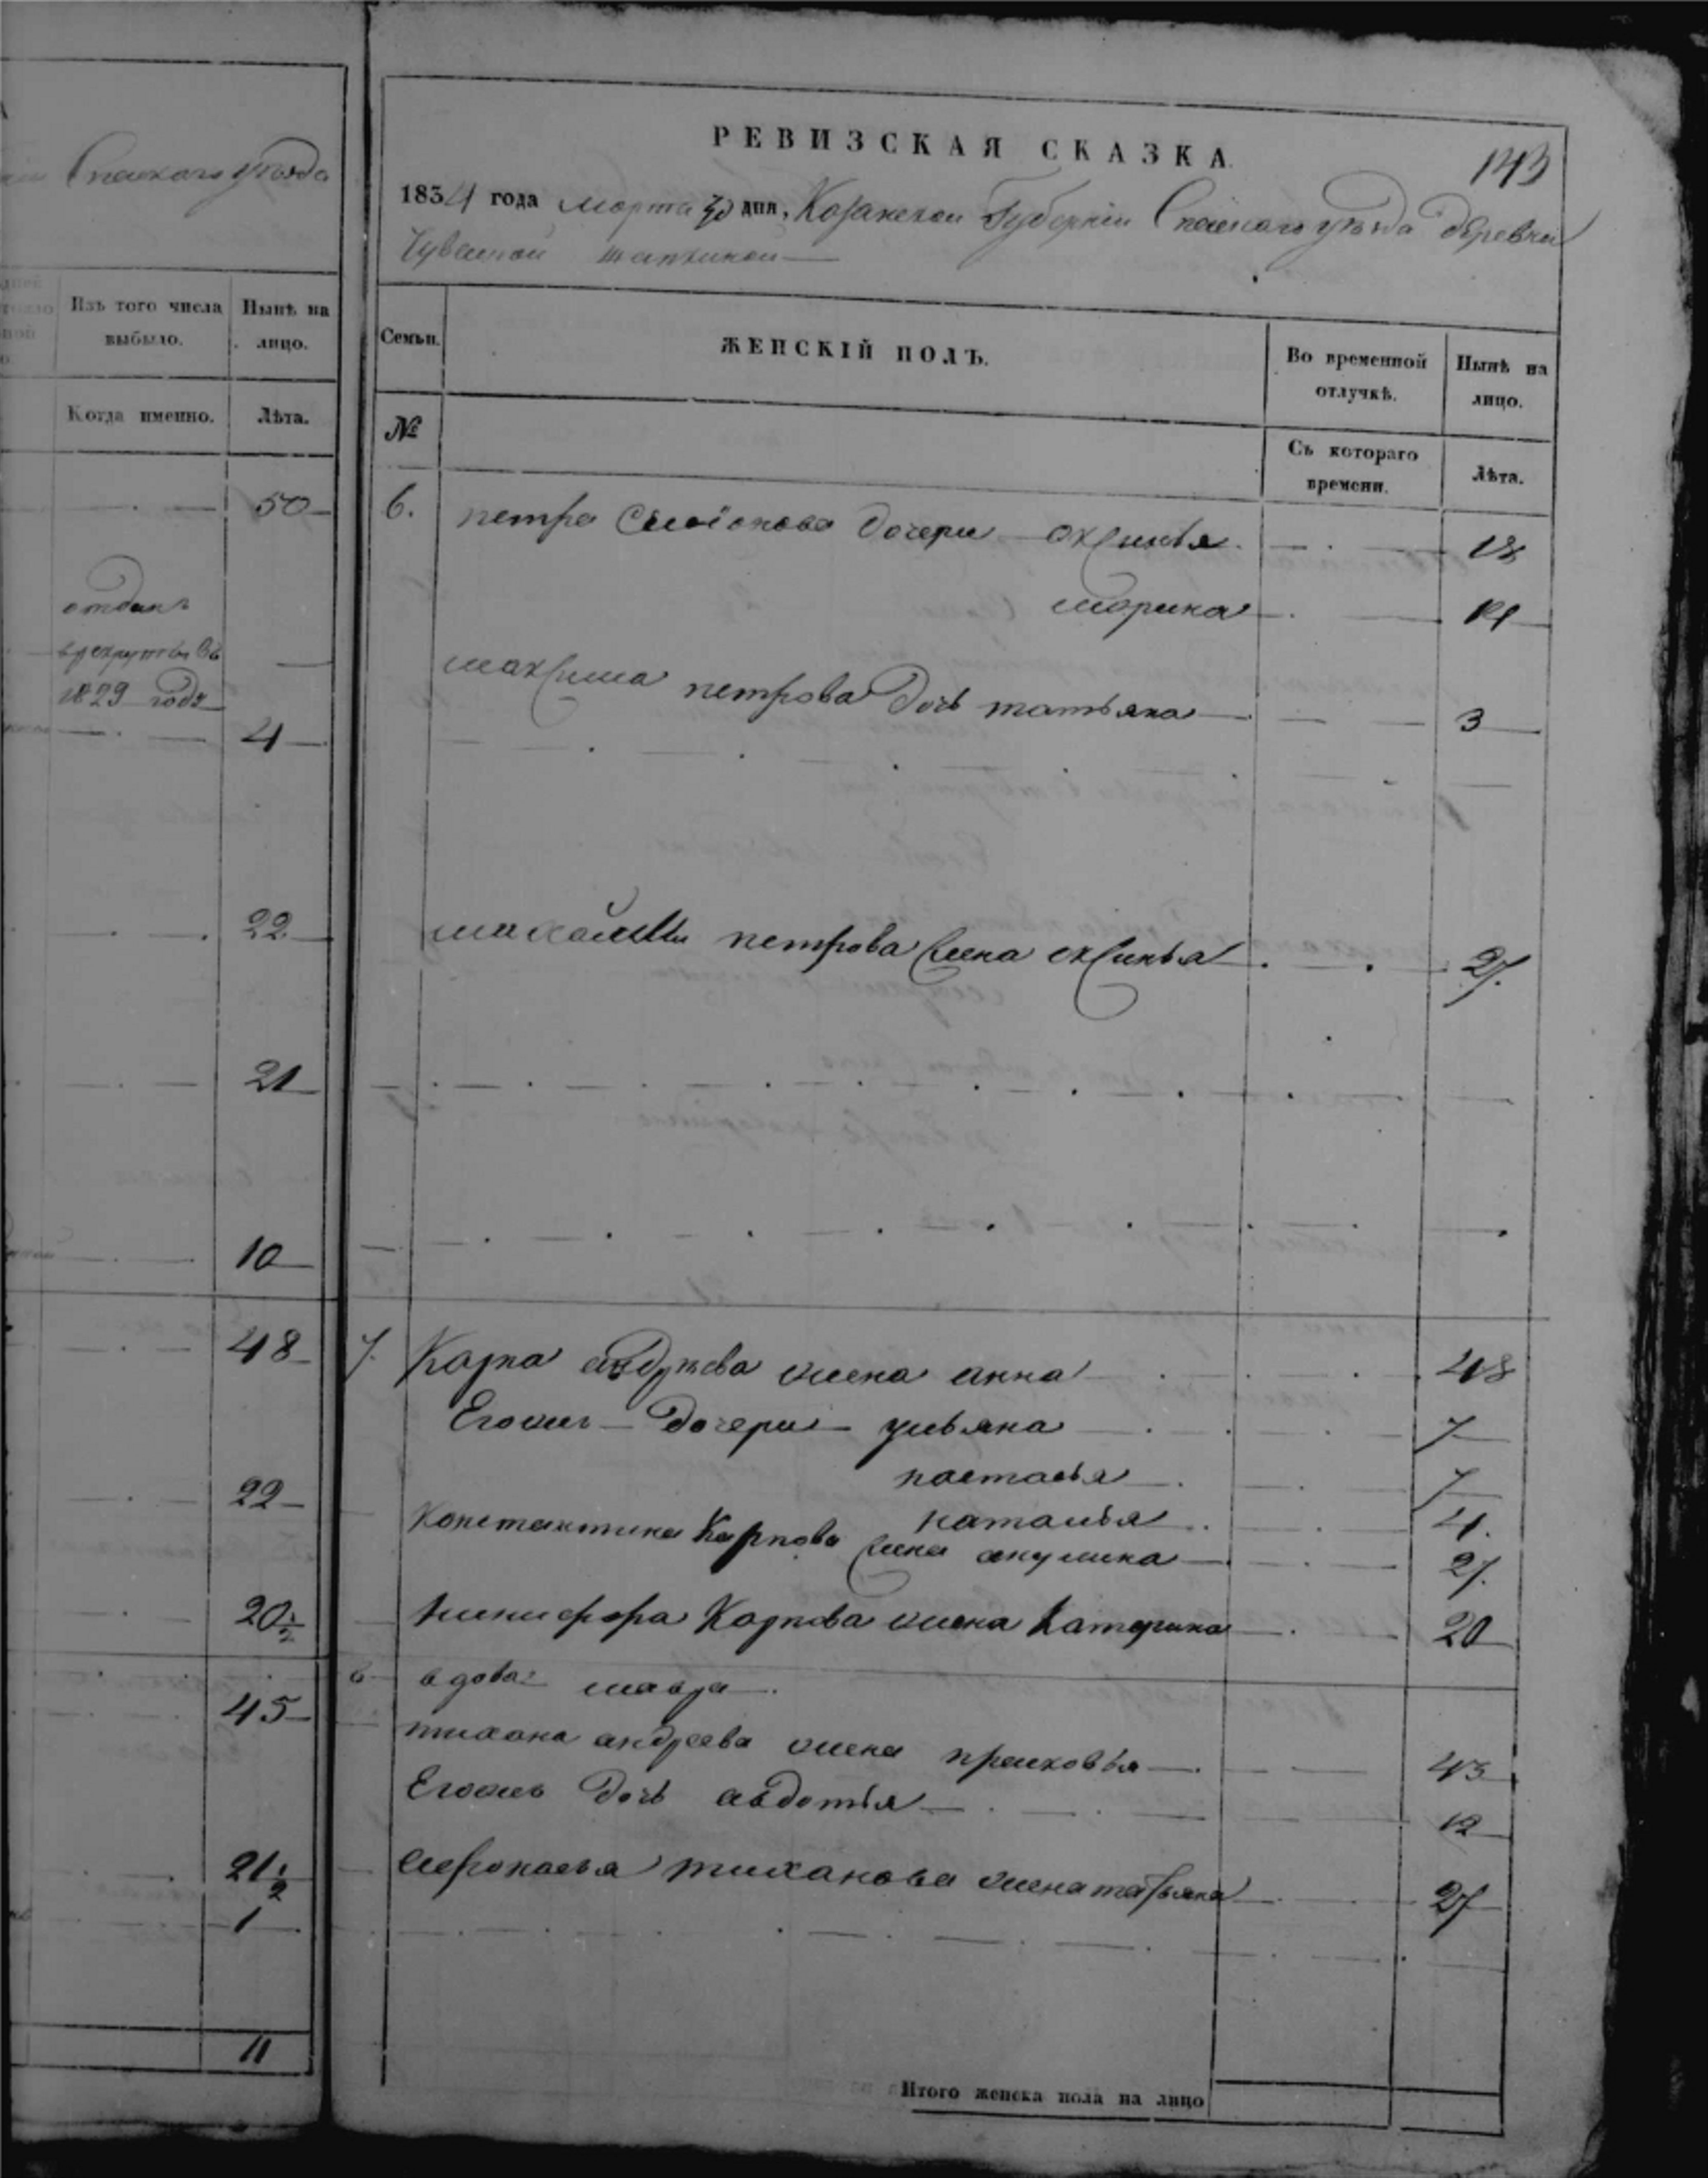 Спаскаго уѣзда
Изъ того числа выбыло.
Нынѣ на лицо.
Когда именно.
Лѣта.
50
отданъ
в рекруты въ
1829 годѣ
4
22
21
10
48
22
20 1/2
45
21 1/2
1
11
РЕВИЗСКАЯ СКАЗКА
143
1834 года Марта 30 дня, Казанской Губерніи Спаскаго уѣзда деревни
Чувашской
Семьи.
ЖЕНСКІЙ ПОЛЪ.
Во временной отлучкѣ.
Нынѣ на лицо.
№
Съ котораго времени.
Лѣта.
6. петра Семіонова дочери оксинья 18
марина 14
максима петрова дочь татьяна 3
михайлы петрова жена оксинья 27.
7. Карпа андреева жена анна 48
Егожъ дочери ульяна 7
настасья 7
наталья 4.
Константина Карпова жена акулина 27.
никифора Карпова жена катерина 20
8 вдова мавра
тихона андреева жена прасковья 43
Егожъ дочь авдотья 12
афонасья тиханова жена татьяна 27
Итого женска пола на лицо